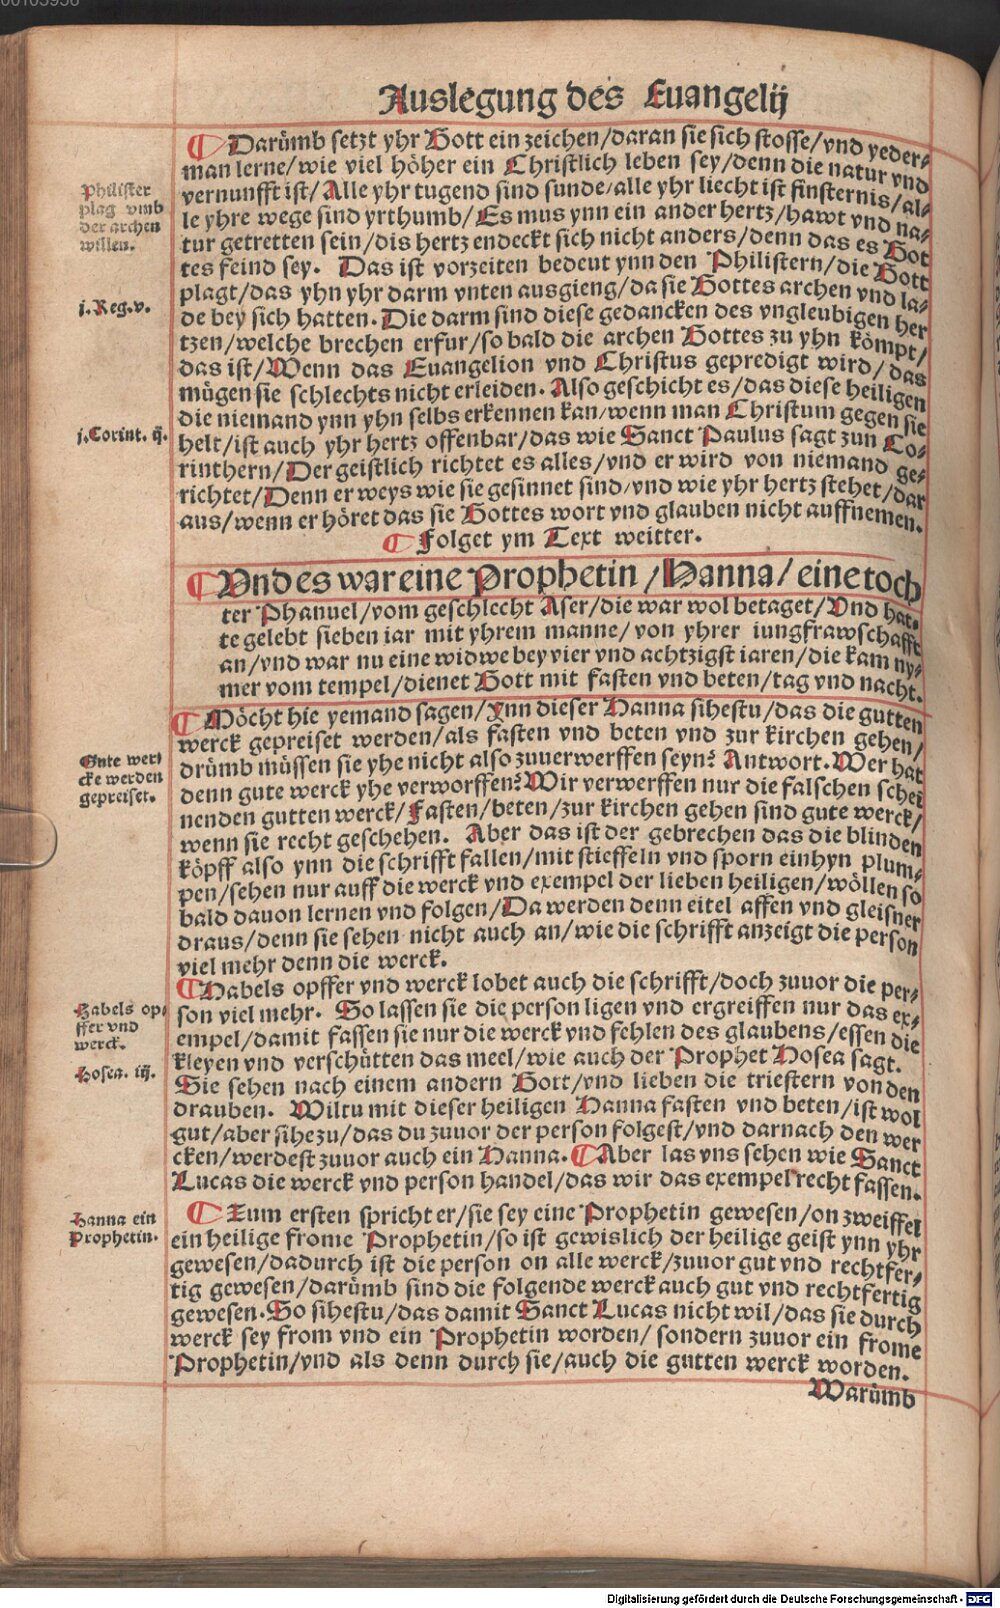 Auslegung des Euangelij
¶ Darümb setzt yhr Gott ein zeichen/daran sie sich stosse/vnd yeder⸗
man lerne/wie viel höher ein Christlich leben sey/denn die natur vnd
vernunfft ist/Alle yhr tugend sind sunde/alle yhr liecht ist finsternis/al⸗
le yhre wege sind yrthumb/Es mus ynn ein ander hertz/hawt vnd na⸗
tur getretten sein/dis hertz endeckt sich nicht anders/denn das es Got
tes feind sey. Das ist vorzeiten bedeut ynn den Philistern/die Gott
plagt/das yhn yhr darm vnten ausgieng/da sie Gottes archen vnd la⸗
de bey sich hatten. Die darm sind diese gedancken des vngleubigen her
tzen/welche brechen erfur/so bald die archen Gottes zu yhn kömpt/
das ist/Wenn das Euangelion vnd Christus gepredigt wird/das
mügen sie schlechts nicht erleiden. Also geschicht es/das diese heiligen
die niemand ynn yhn selbs erkennen kan/wenn man Christum gegen sie
helt/ist auch yhr hertz offenbar/das wie Sanct Paulus sagt zun Co⸗
rinthern/Der geistlich richtet es alles/vnd er wird von niemand ge⸗
richtet/Denn er weys wie sie gesinnet sind/vnd wie yhr hertz stehet/dar
aus/wenn er höret das sie Gottes wort vnd glauben nicht auffnemen.
¶ Folget ym Text weitter.
Philister
plag vmb
der archen
willen.
j.Reg.v.
j.Corint. ij.
¶ Vnd es war eine Prophetin/Hanna/eine toch
ter Phanuel/vom geschlecht Aser/die war wol betaget/Vnd hat⸗
te gelebt sieben iar mit yhrem manne/von yhrer iungfrawschafft
an/vnd war nu eine widwe bey vier vnd achtzigst iaren/die kam ny⸗
mer vom tempel/dienet Gott mit fasten vnd beten/tag vnd nacht.
¶ Möcht hie yemand sagen/Ynn dieser Hanna sihestu/das die gutten
werck gepreiset werden/als fasten vnd beten vnd zur kirchen gehen/
drümb müssen sie yhe nicht also zuuerwerffen seyn? Antwort. Wer hat
denn gute werck yhe verworffen? Wir verwerffen nur die falschen schei
nenden gutten werck/Fasten/beten/zur kirchen gehen sind gute werck/
wenn sie recht geschehen. Aber das ist der gebrechen das die blinden
köpff also ynn die schrifft fallen/mit stieffeln vnd sporn einhyn plum⸗
pen/sehen nur auff die werck vnd exempel der lieben heiligen/wöllen so
bald dauon lernen vnd folgen/Da werden denn eitel affen vnd gleisner
draus/denn sie sehen nicht auch an/wie die schrifft anzeigt die person
viel mehr denn die werck.
Gute wer⸗
cke werden
gepreiset.
¶ Habels opffer vnd werck lobet auch die schrifft/doch zuuor die per⸗
son viel mehr. So lassen sie die person ligen vnd ergreiffen nur das ex⸗
empel/damit fassen sie nur die werck vnd fehlen des glaubens/essen die
kleyen vnd verschütten das meel/wie auch der Prophet Hosea sagt.
Sie sehen nach einem andern Gott/vnd lieben die triestern von den
drauben. Wiltu mit dieser heiligen Hanna fasten vnd beten/ist wol
gut/aber sihe zu/das du zuuor der person folgest/vnd darnach den wer
cken/werdest zuuor auch ein Hanna. ¶ Aber las vns sehen wie Sanct
Lucas die werck vnd person handel/das wir das exempel recht fassen.
Habels op⸗
ffer vnd
werck.
Hosea. iij.
¶ Zum ersten spricht er/sie sey eine Prophetin gewesen/on zweiffel
ein heilige frome Prophetin/so ist gewislich der heilige geist ynn yhr
gewesen/dadurch ist die person on alle werck/zuuor gut vnd rechtfer⸗
tig gewesen/darümb sind die folgende werck auch gut vnd rechtfertig
gewesen. So sihestu/das damit Sanct Lucas nicht wil/das sie durch
werck sey from vnd ein Prophetin worden/sondern zuuor ein frome
Prophetin/vnd als denn durch sie/auch die gutten werck worden.
Hanna ein
Prophetin.
Warümb
Digitalisierung gefördert durch die Deutsche Forschungsgemeinschaft - DFG